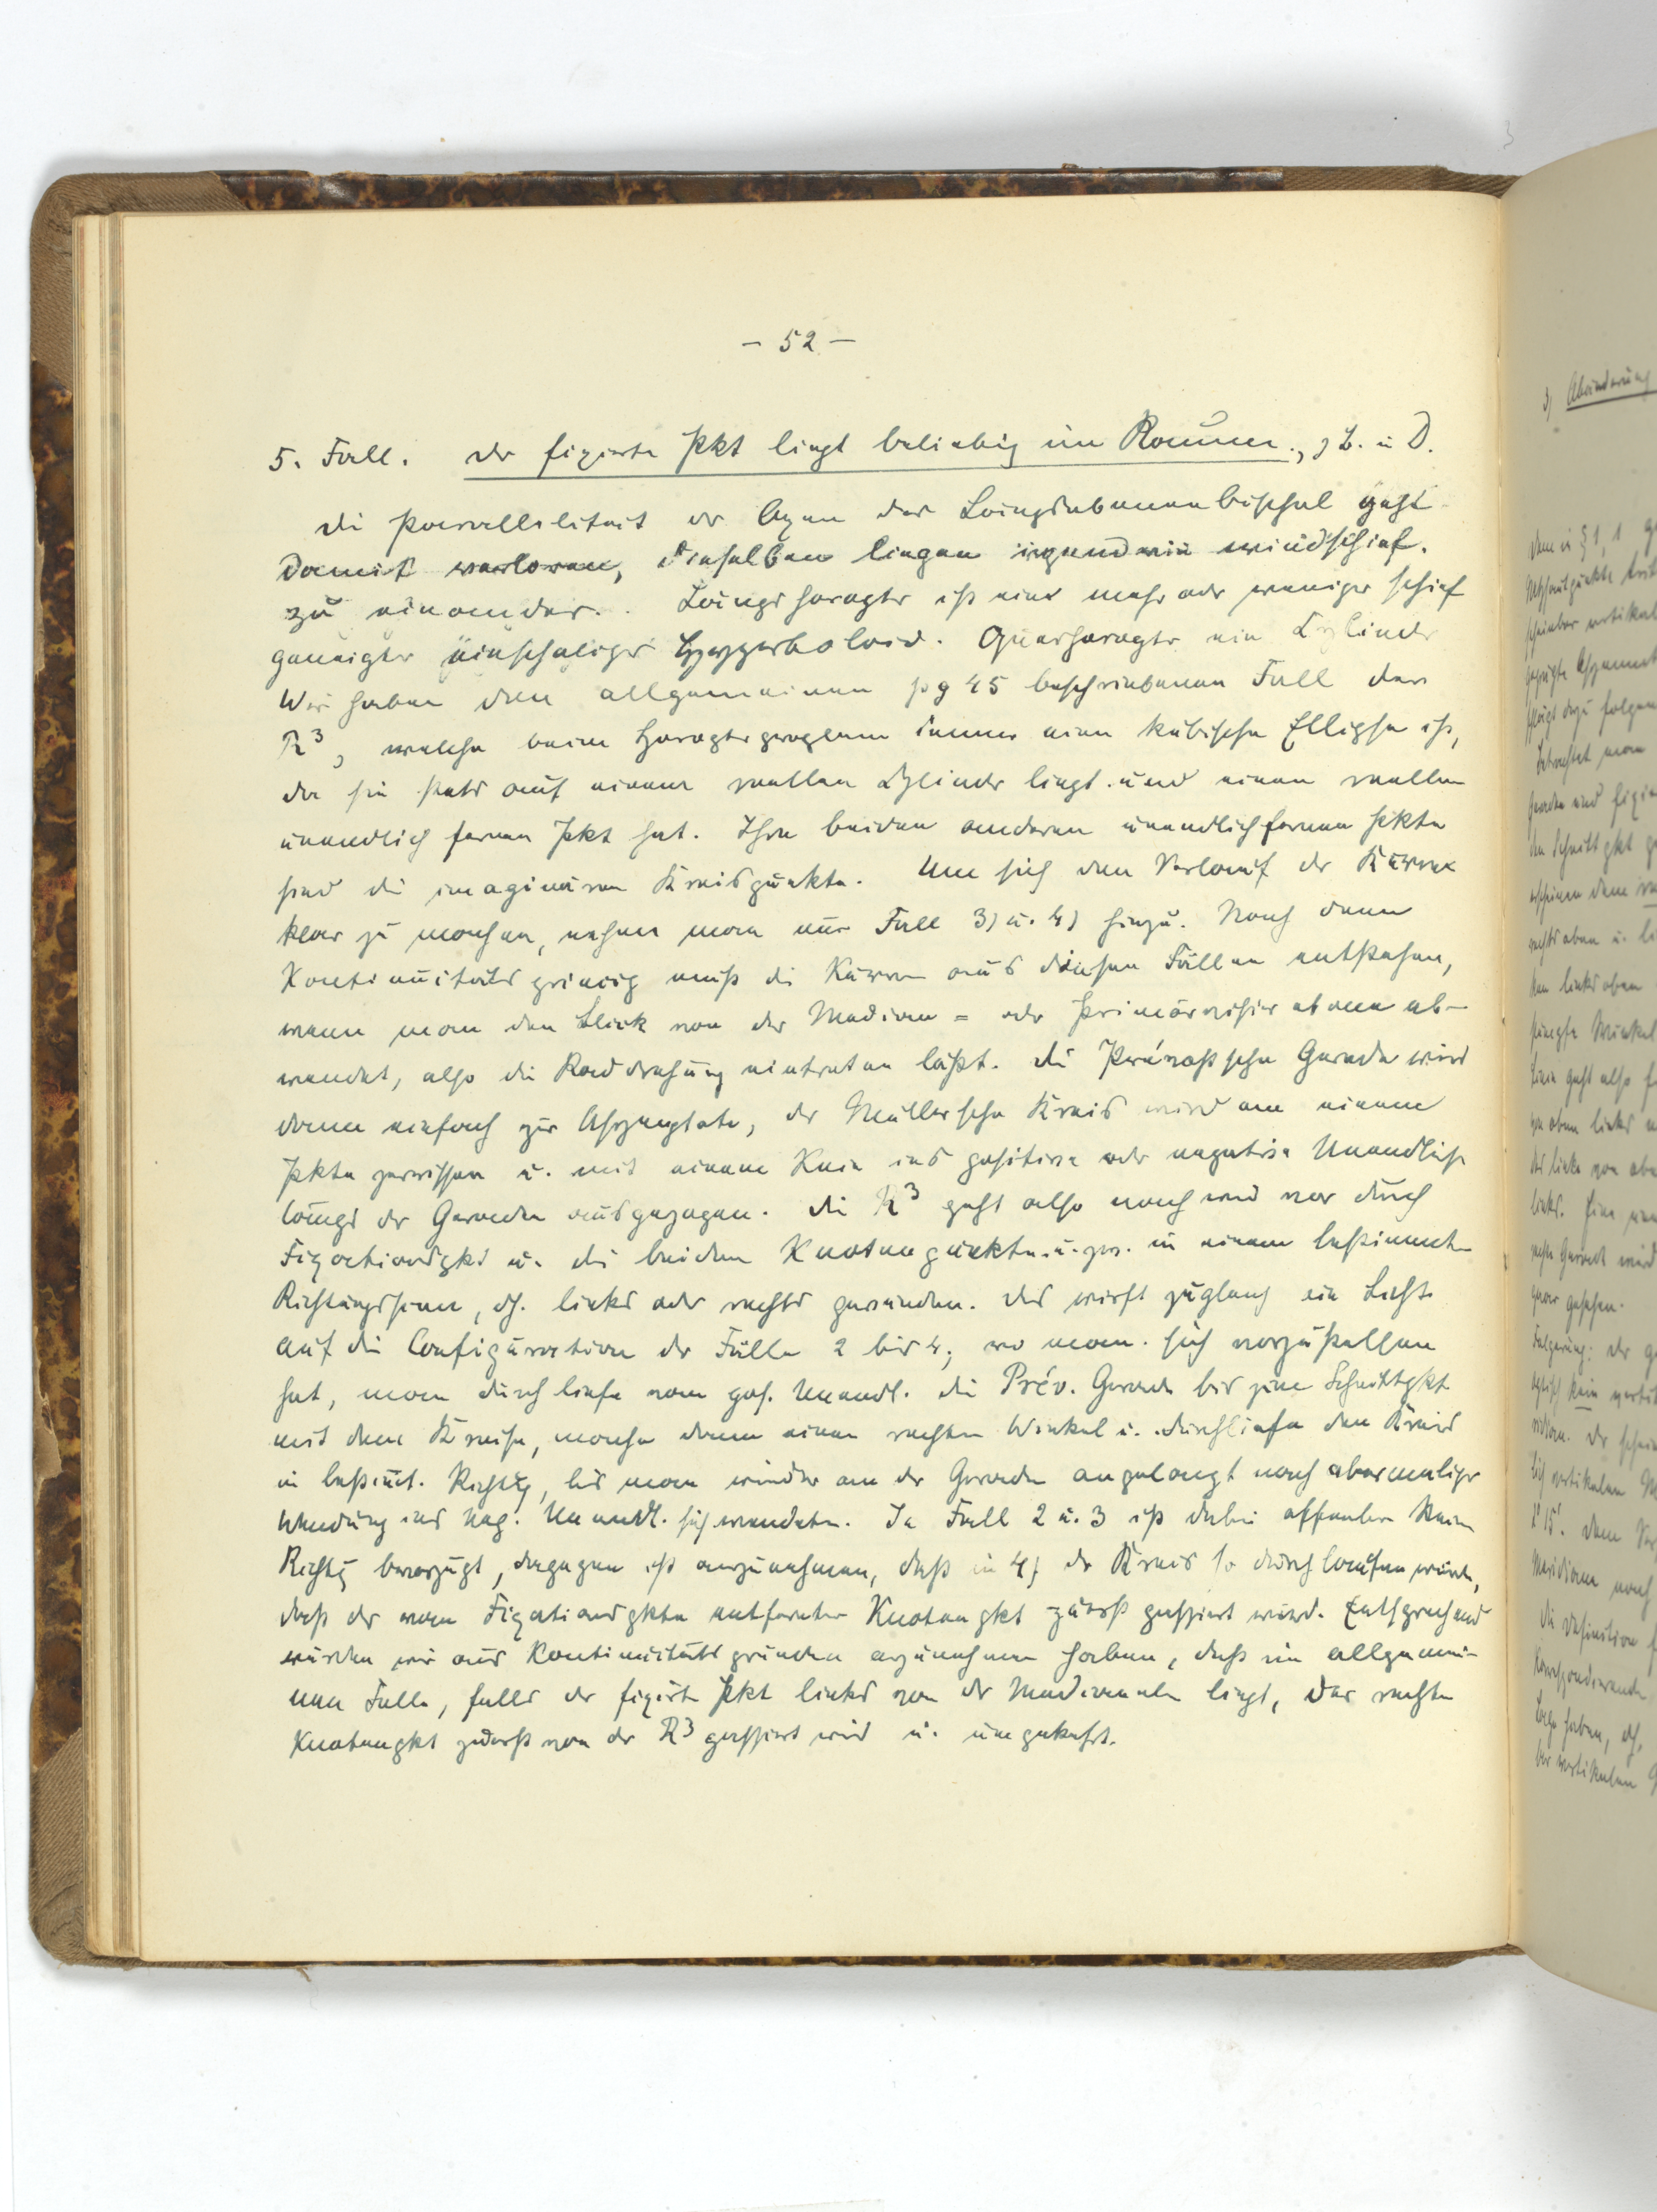 – 52 –
5. Fall. Der fixierte Pkt liegt beliebig im Raume., z B. in D.
Die Parallelität der Axen der Längsebenenbüschel geht
damit verloren, dieselben liegen irgendwie windschief.
zu einander. Längshoropter ist ein mehr oder weniger schief
geneigter einschaliger Hyperboloid. Querhoropter ein Zylinder
Wir haben den allgemeinen pg 45 beschriebenen Fall der
R³, welche beim Horopterproblem immer eine kubische Ellipse ist,
da sie stets auf einem reellen Zylinder liegt und einen reellen
unendlich fernen Pkt hat. Ihre beiden anderen unendlichfernen Pkte
sind die imaginären Kreispunkte. Um sich den Verlauf der Kurve
klar zu machen, nehme man nur Fall 3) u. 4) hinzu. Nach dem
Kontinuitätsprincip muß die Kurve aus diesen Fällen entstehen,
wenn man den Blick von der Median = oder Primärvisierebene ab-
wendet, also die Raddrehung eintreten läßt. Die Prévostsche Gerade wird
dann einfach zur Asymptote, der Müllersche Kreis wird an einem
Pkte zerrissen u. mit einem Knie ins positive oder negative Unendliche
längs der Geraden ausgezogen. Die R³ geht also nach wie vor durch
Fixationspkt u. die beiden Knotenpunkte u. zw. in einem bestimmten
Richtungssinn, dh. links oder rechts gewunden. Das wirft zugleich ein Licht
auf die Configuration der Fälle 2 bis 4, wo man sich vorzustellen
hat, man durchliefe vom pos. Unendl. die Prév. Gerade bis zum Schnittpkt
mit dem Kreise, mache dann einen rechten Winkel u. durchliefe den Kreis
in bestimt. Richtg, bis man wieder an der Geraden angelangt nach abermaliger
Wendung ins Neg. Unendl. sich wendete. In Fall 2 u. 3 ist dabei offenbar keine
Richtg bevorzugt, dagegen ist anzunehmen, daß in 4) der Kreis so durchlaufen würde,
daß der vom Fixationspkte entferntere Knotenpkt zuerst passiert würde. Entsprechend
würden wir aus Kontinuitätsgründen anzunehmen haben, daß im allgemei-
nen Falle, falls der fixierte Pkt links von der Medianeben liegt, der rechte
Knotenpkt zuerst von der R³ passiert wird u. umgekehrt.